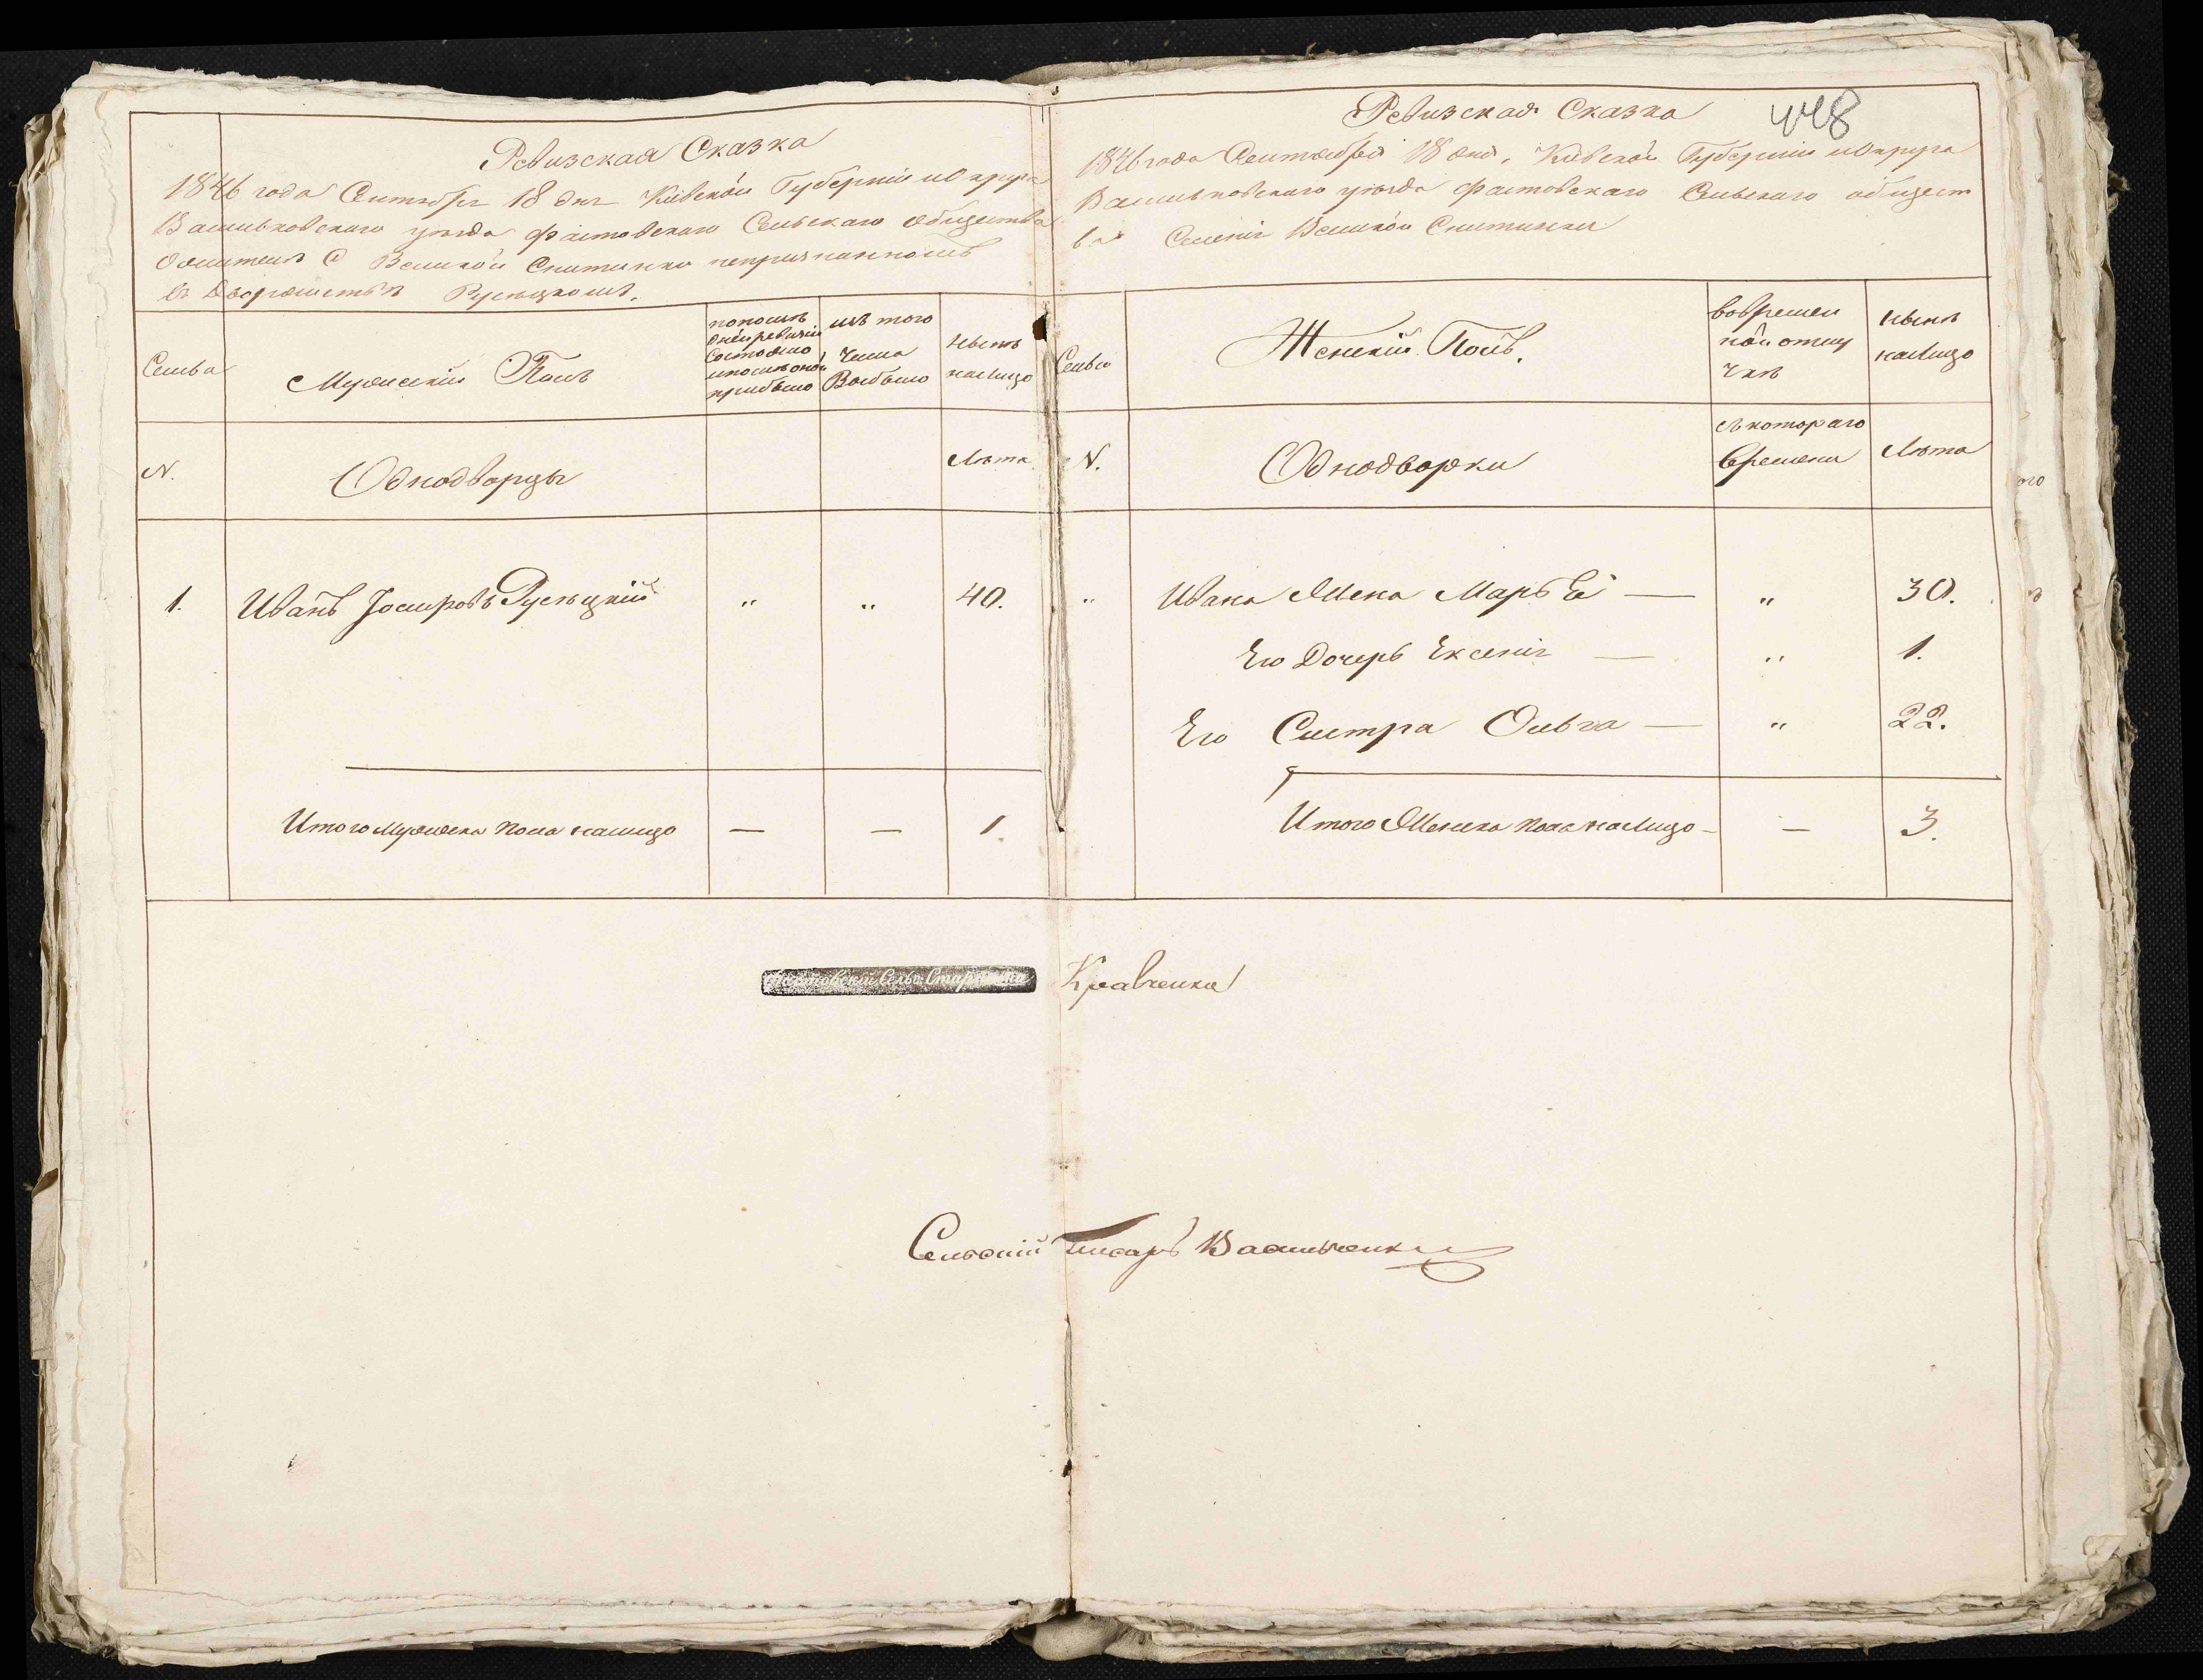 Ревизская Сказка
1846 года Сентября 18 дня Кіевской Губерніи и Округа
Васильковского уѣзда Фастовскаго Сельскаго общества
О жителѣ С Великой Снитинки непризнанномъ
въ Дворянствѣ Русѣцкомъ.
Семьа
Мужескій Полъ
пополнѣ
дней ревизіи
состояло
и послѣ оной
прибыло
изъ того
числа
Выбыло
нынѣ
налицо
N.
Однодворцы
Лѣта
1. Иванъ Іосиповъ Русѣцкій " " 40.
Итого мужеска пола налицо — — 1.
448
Ревизская Сказка
1846 года Сентября 18 дня, Кіевской Губерніи и Округа
Васильковскаго уѣзда Фастовскаго Сельскаго общест
ва Селенія Великой Снитинки
Семьи
Женскій Полъ.
вовремен
ной отлу
чкѣ
нынѣ
налицо
N.
Однодворки
съ котораго
времени
Лѣта
" Ивана Жена Марья — " 30.
Его Дочерь Ексенія — " 1.
Его Систра Ольга — " 22.
Итого Женска пола налицо — — 3.
Фастовскій Сельс: Старшина Кравченко
Сельскій Писарь Васильченко